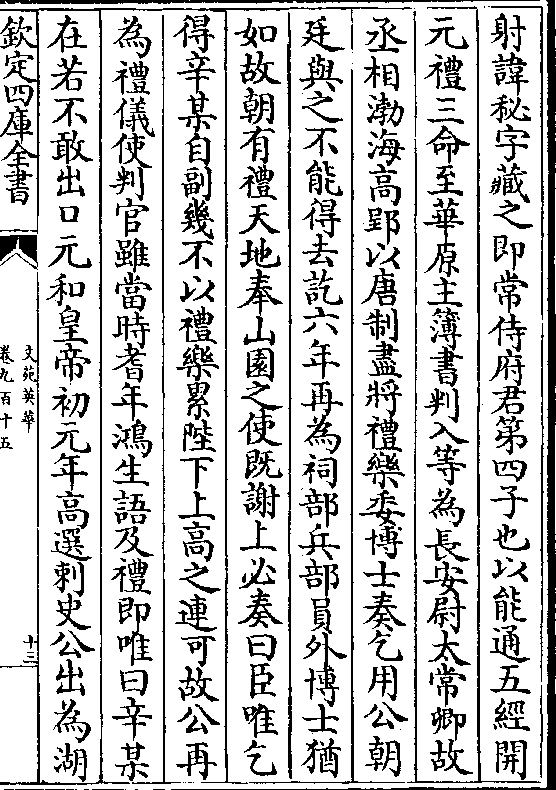 射諱秘字藏之即常侍府君第四子也以能通五經開
元禮三命至華原主簿書判入等為長安尉太常卿故
丞相渤海高郢以唐制盡將禮樂委博士奏乞用公朝
廷與之不能得去訖六年再為祠部兵部員外博士猶
如故朝有禮天地奉山園之使既謝上必奏曰臣唯乞
得辛某自副幾不以禮樂累陛下上高之連可故公再
為禮儀使判官雖當時耆年鴻生語及禮即唯曰辛某
在若不敢出口元和皇帝初元年高選刺史公出為湖
欽定四庫全書
文苑英華
卷九百十五
十三